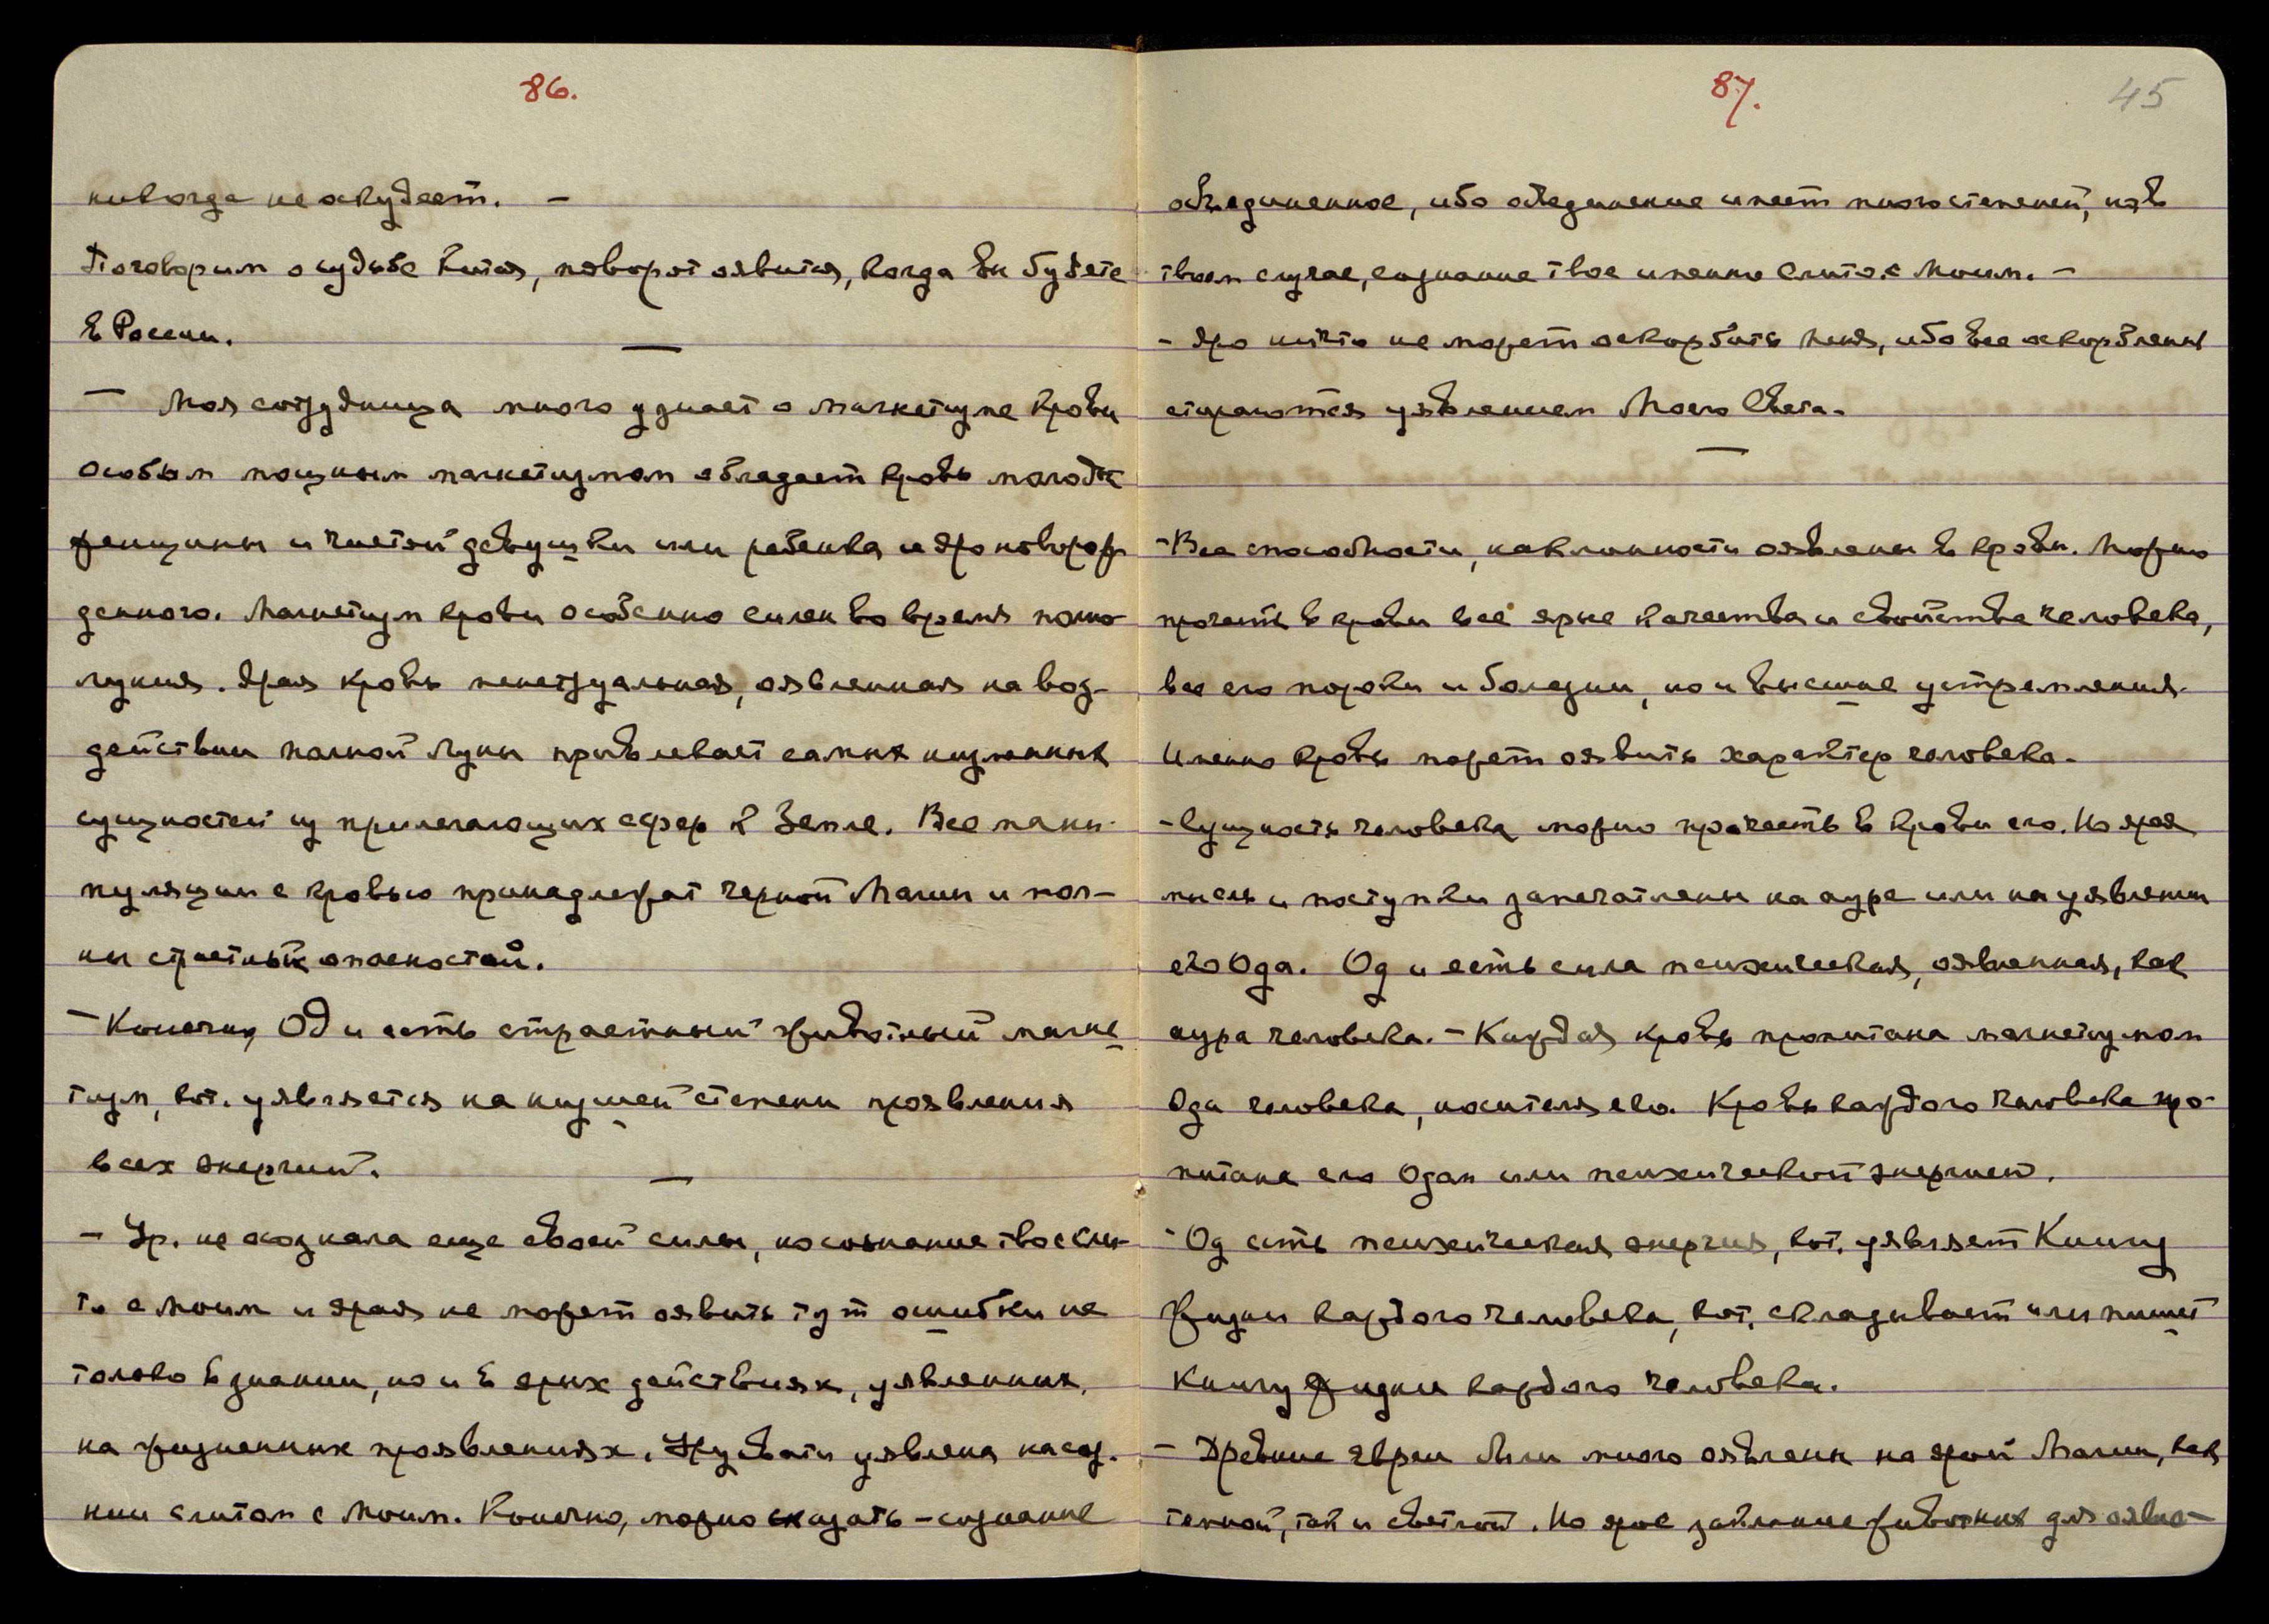 86.
никогда не оскудеет. —
Поговорим о судьбе Китая, поворот оявится, когда вы будете
в России.
— Моя сотрудница много узнает о магнетизме крови
Особым мощным магнетизмом обладает кровь молодой
женщины и чистой девушки или ребенка и яро новорож-
денного. Магнетизм крови особенно силен во время полно-
луния. Ярая кровь менструальная, оявленная на воз-
действии полной Луны привлекает самых низменных
сущностей из прилегающих сфер к Земле. Все мани-
пуляции с кровью принадлежат черной Магии и пол-
ны страстных опасностей.
— Конечно, Од и есть страстный животный магне
тизм, кот. уявляется на низшей степени проявления
всех энергий. —
— Ур. не осознала еще своей силы, но сознание твое сли-
то с Моим и ярая не может оявить тут ошибки не
только в знании, но и в ярых действиях, уявленных,
на жизненных проявлениях. Урусвати уявлена на соз.
нии слитом с Моим. Конечно, можно сказать – сознание
87.
45
объединенное, ибо объединение имеет много степеней, но в
твоем случае, сознание твое именно слито с Моим. —
— Яро ничто не может оскорбить Меня, ибо все оскорбления
стираются уявлением Моего Света.
—
— Все способности, наклонности оявлены в крови. Можно
прочесть в крови все ярые качества и свойства человека,
все его пороки и болезни, но и высшие устремления.
Именно кровь может оявить характер человека.
— Сущность человека можно прочесть в крови его. Но ярая
мысль и поступки запечатлены на ауре или на уявлении
его Ода. Од и есть сила психическая, оявленная, как
аура человека. — Каждая кровь пропитана магнетизмом
Ода человека, носителя его. Кровь каждого человека про-
питана его Одом или психической энергией.
— Од есть психическая энергия, кот. уявляет Книгу
Жизни каждого человека, кот. складывает или пишет
Книгу Жизни каждого человека.
— Древние евреи были много оявлены на ярой Магии, как
темной, так и светлой. Но ярое заклание животных для оявле-